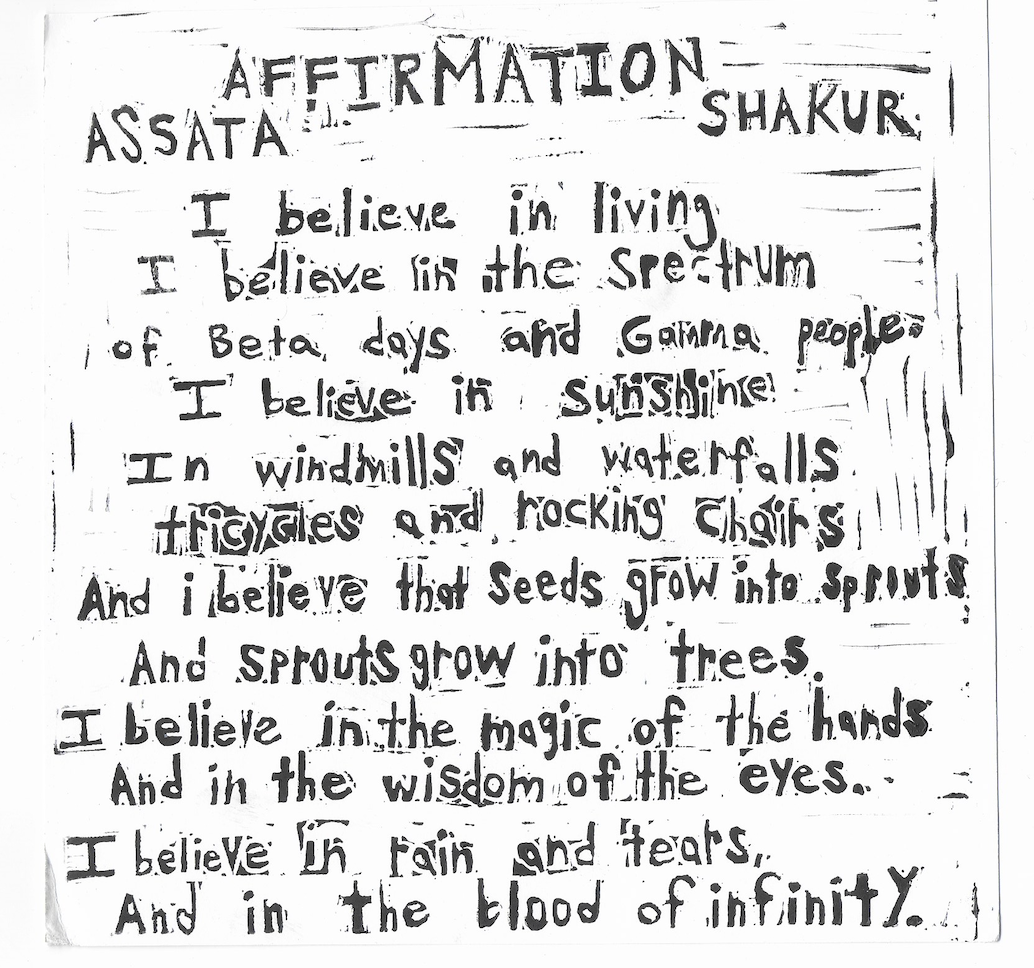 AFFIRMATION
ASSATA SHAKUR
I believe in living
I believe in the spectrum
of Beta days and Gamma people.
I believe in sunshine
In windmills and waterfalls
tricycles and rocking chairs
And i believe that Seeds grow into sprouts
And sprouts grow into trees.
I believe in the magic of the hands
And in the wisdom of the eyes.
I believe in rain and tears,
And in the blood of infinity.